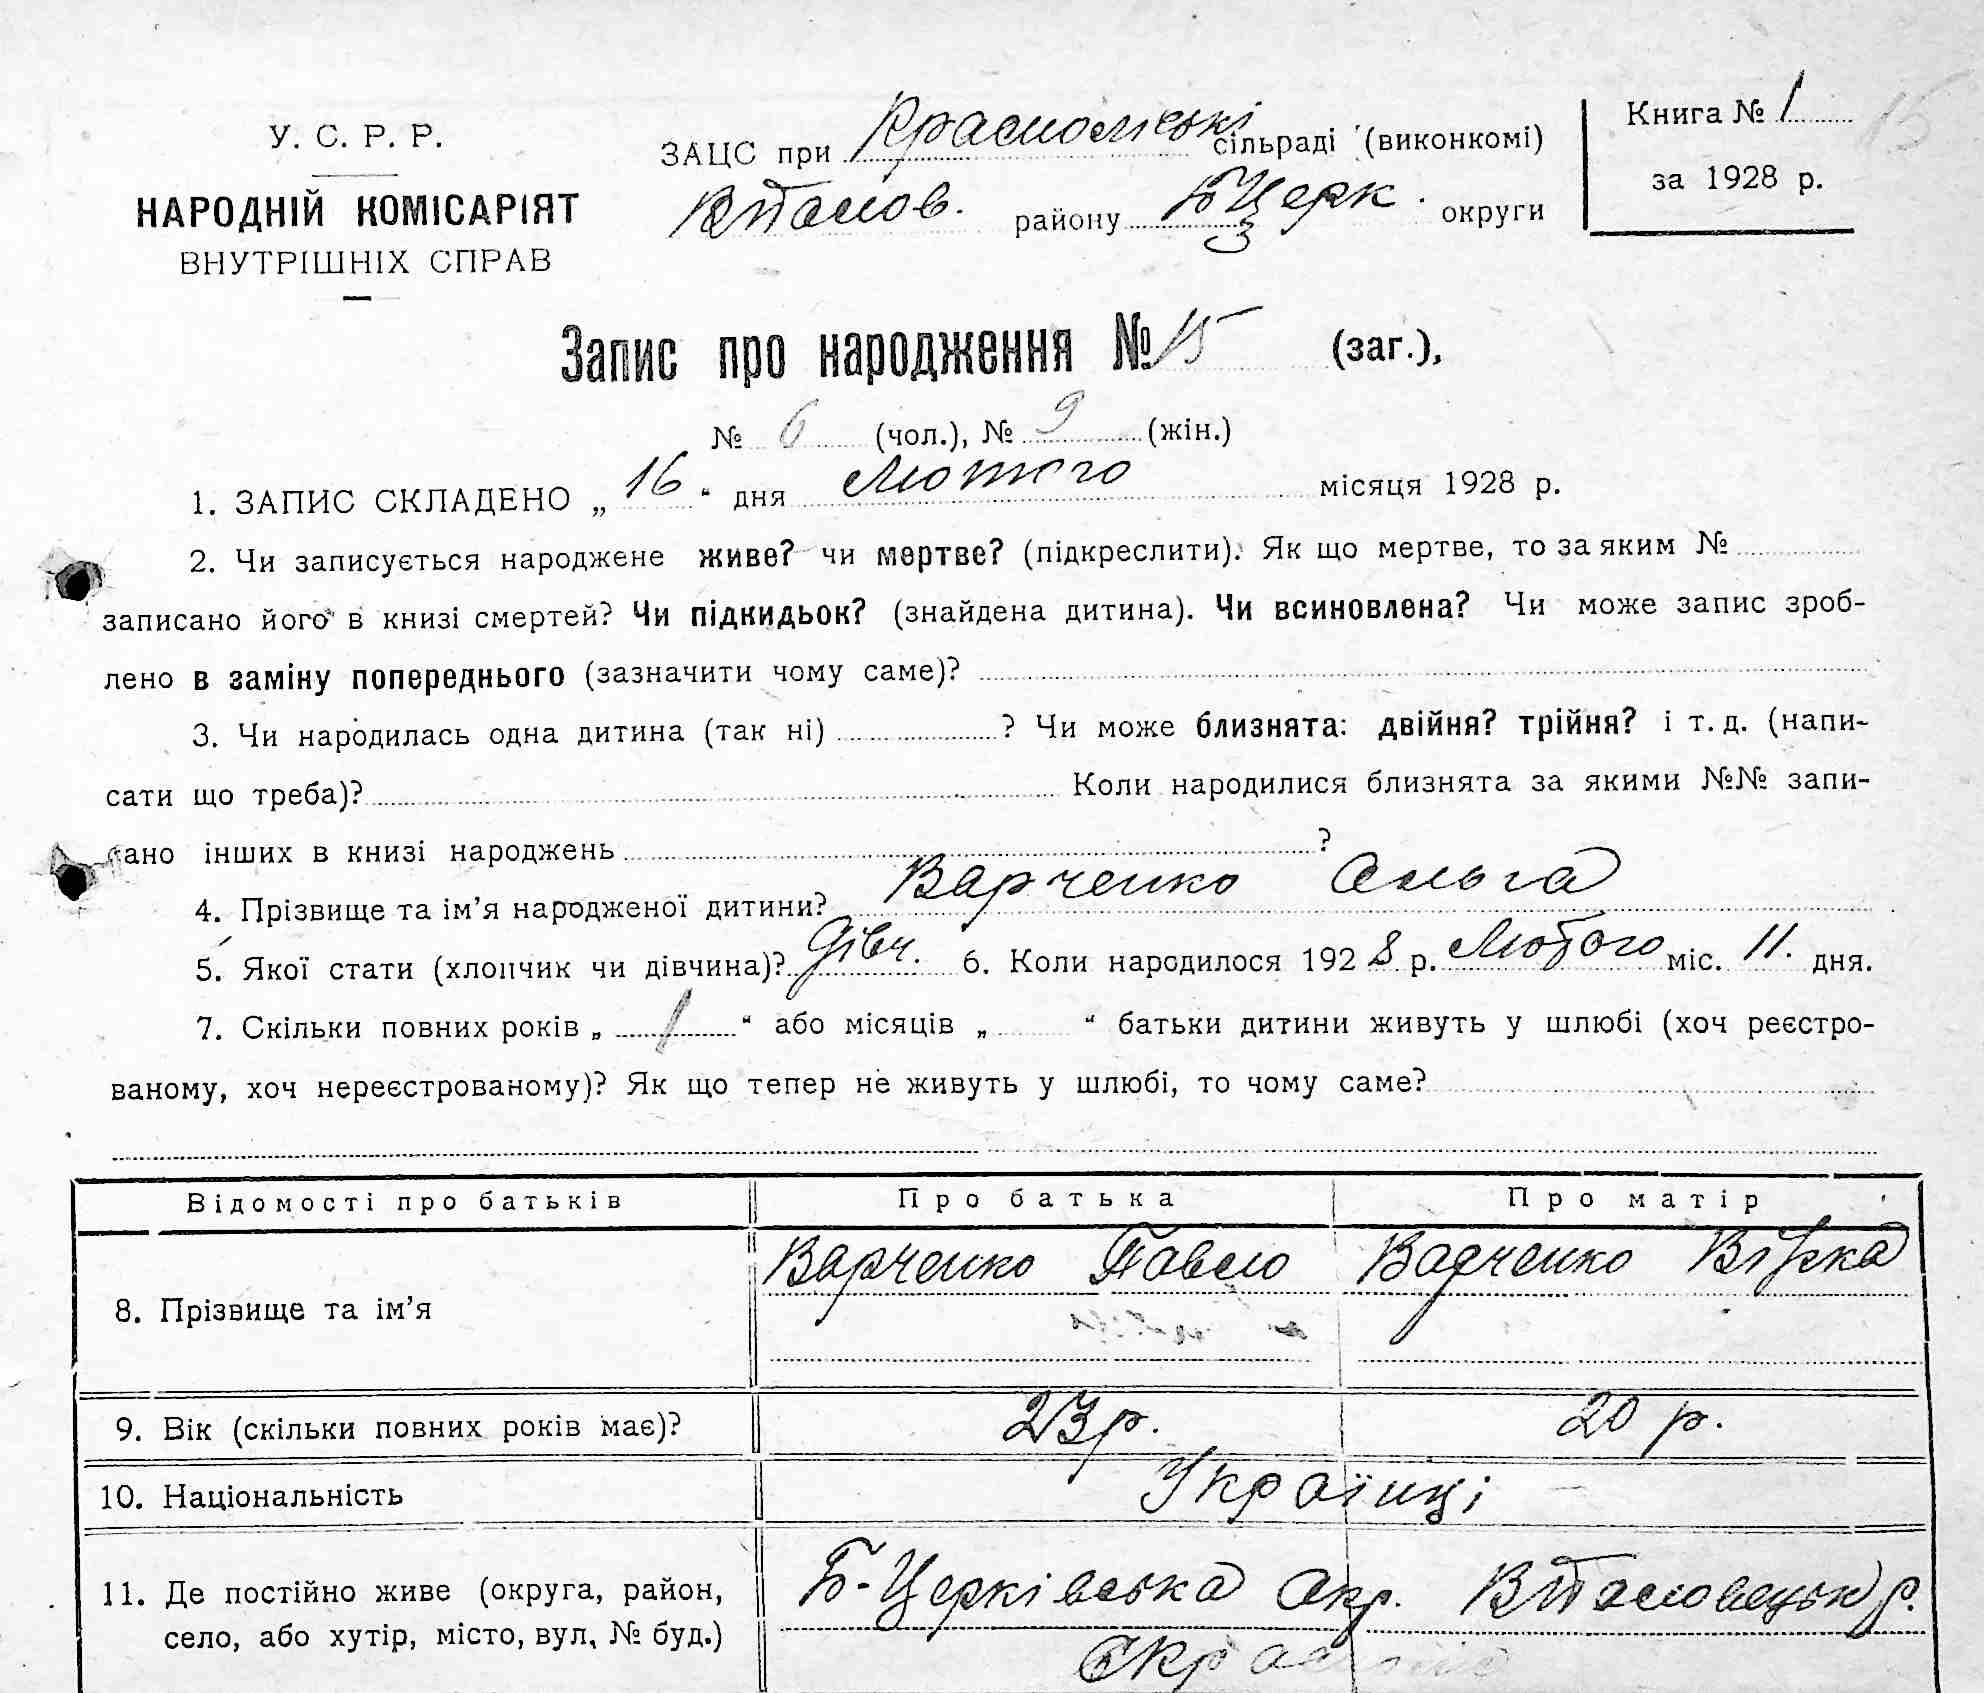 У. С. Р. Р.
НАРОДНІЙ КОМІСАРІЯТ
ВНУТРІШНІХ СПРАВ
ЗАЦС при сільраді (виконкомі)
району Б Церк. округи
Книга № 1
за 1928 р.
15
Запис про народження № 15 (заг.),
№ 6 (чол.), № 9 (жін.)
1. ЗАПИС СКЛАДЕНО „ 16 “ дня Лютого місяця 1928 р.
2. Чи записується народжене живе? чи мертве? (підкреслити). Як що мертве, то за яким №
записано його в книзі смертей? Чи підкидьок? (знайдена дитина). Чи всиновлена? Чи може запис зроб-
лено в заміну попереднього (зазначити чому саме)?
3. Чи народилась одна дитина (так ні) ? Чи може близнята: двійня? трійня? і т. д. (напи-
сати що треба)? Коли народилися близнята за якими №№ запи-
сано інших в книзі народжень ?
4. Прізвище та ім’я народженої дитини? Варченко Ольга
5. Якої статі (хлопчик чи дівчина)? Дівч. 6. Коли народилося 1928 р. Лютого міс. 11. дня.
7. Скільки повних років „ 1 “ або місяців „ “ батьки дитини живуть у шлюбі (хоч реєстро-
ваному, хоч нереєстрованому)? Як що тепер не живуть у шлюбі, то чому саме?
Відомості про батьків Про батька Про матір
8. Прізвище та ім’я Варченко Павло Варченко Вірка
9. Вік (скільки повних років має)? 23 р. 20 р.
10. Національність Українці
11. Де постійно живе (округа, район, Б-Церківська Окр.
село, або хутір, місто, вул, № буд.)